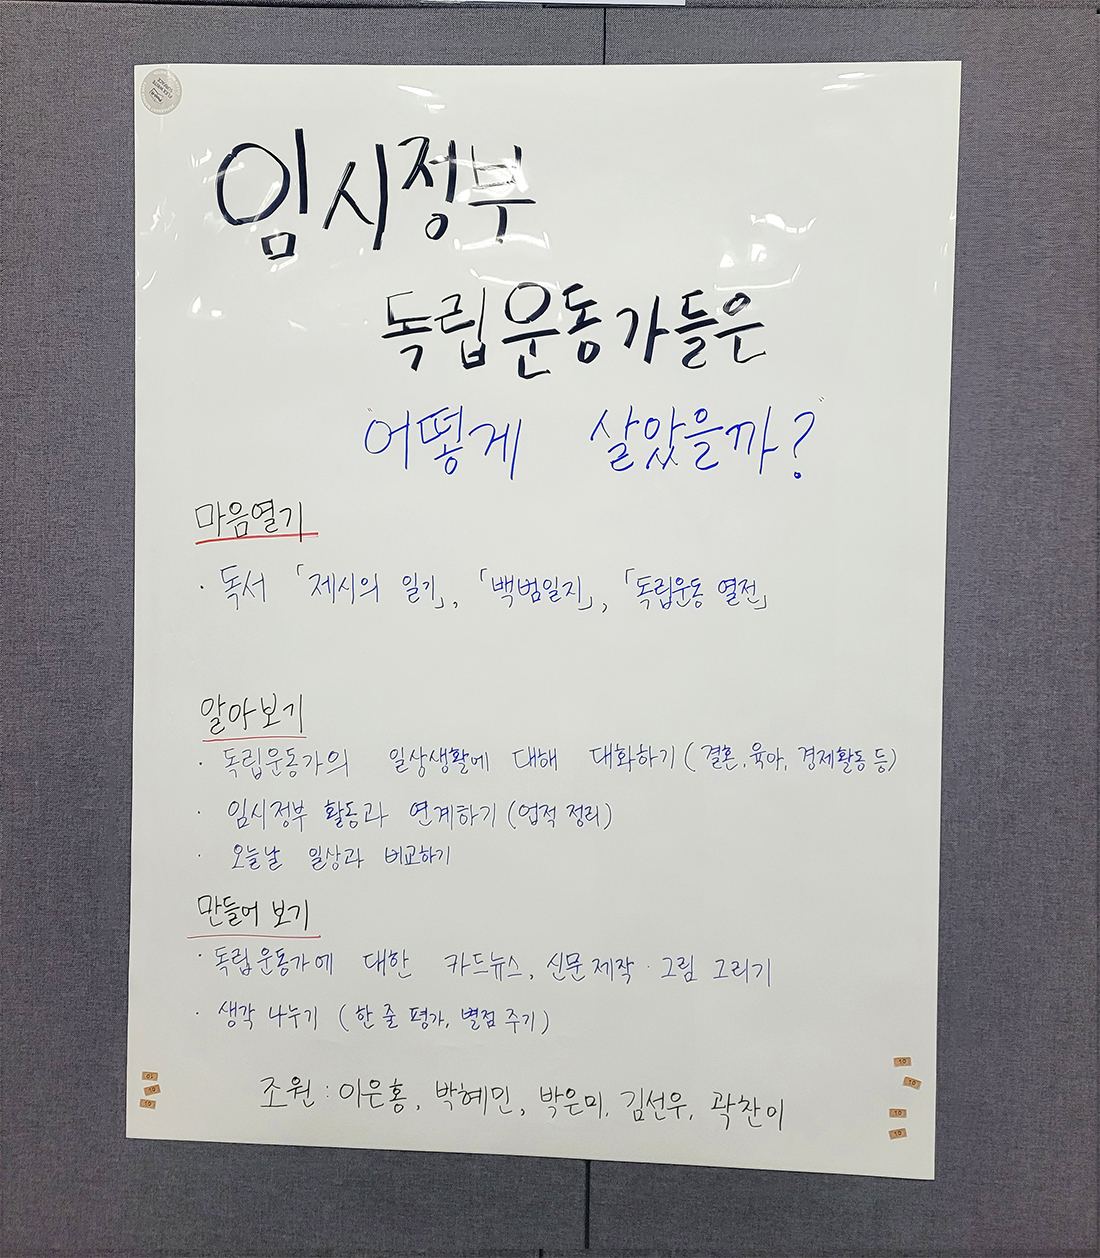 임시정부
독립운동가들은
"어떻게 살았을까?"
마음열기
· 독서 「제시의 일기」, 「백범일지」, 「독립운동 열전」
알아보기
· 독립운동가의 일상생활에 대해 대화하기 (결혼, 육아, 경제활동 등)
· 임시정부 활동과 연계하기 (업적 정리)
· 오늘날 일상과 비교하기
만들어 보기
· 독립운동가에 대한 카드뉴스, 신문 제작 · 그림 그리기
· 생각 나누기 (한 줄 평가, 별점 주기)
조원 : 이은홍, 박혜민, 박은미, 김선우, 곽찬이